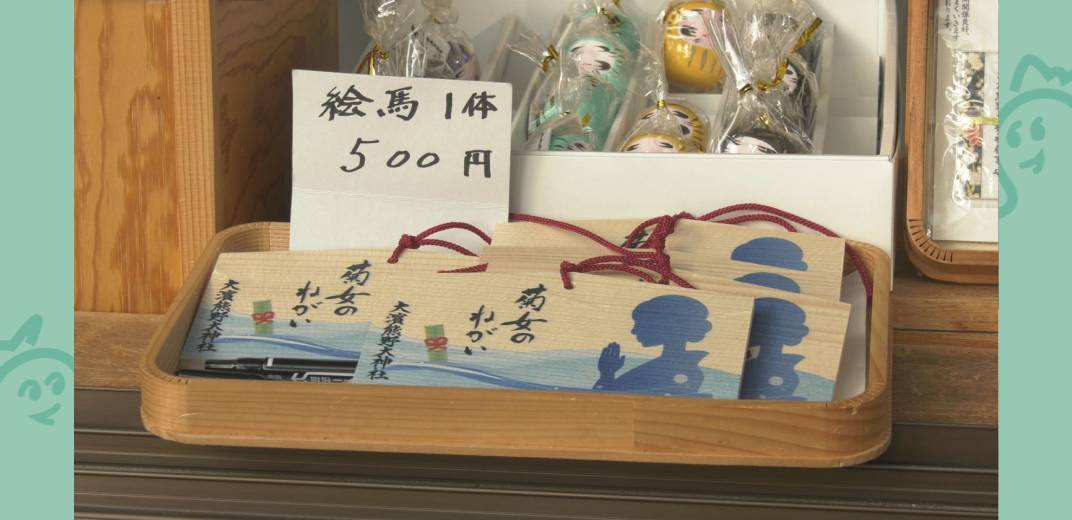 絵馬1体
500円
菊女の
ねがい
大濱熊野大神社
菊女の
ねがい
大濱熊野大神社